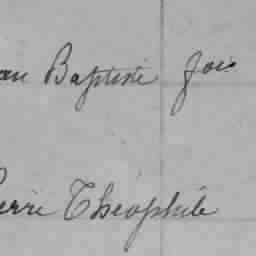 an Baptiste fois
erre Théophile